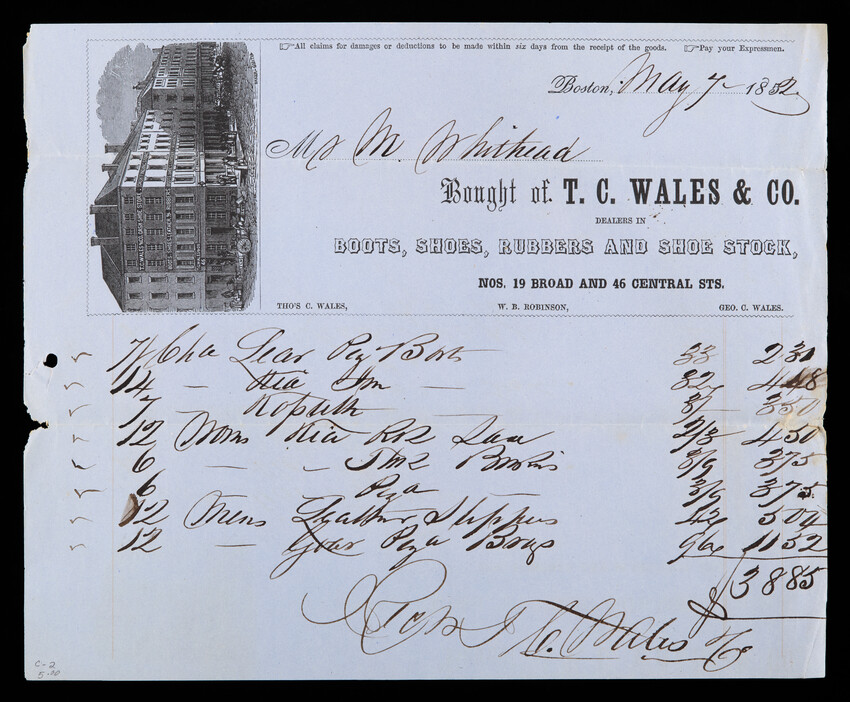 ☞All claims for damages or deductions to be made within six days from the receipt of the goods. ☞Pay your Expressmen.
Boston, May 7 1852
Mr M. Whithead
Bought of T. C. WALES & CO.
DEALERS IN
BOOTS, SHOES, RUBBERS AND SHOE STOCK,
NOS. 19 BROAD AND 46 CENTRAL STS.
THO'S C. WALES, W. B. ROBINSON, GEO. C. WALES.
7 Cha Peg Boots 33 231
14 — Kid — 32 448
7 — — 3/ 350
12 Woms Kid R&2 2/3 450
6 — - 3/9 375
6 3/9 375
12 Mens Leather Slippers 42 504
12 — Goat Brogs 96 1152
$3885
T. C. Wales & Co
C-2
5-00